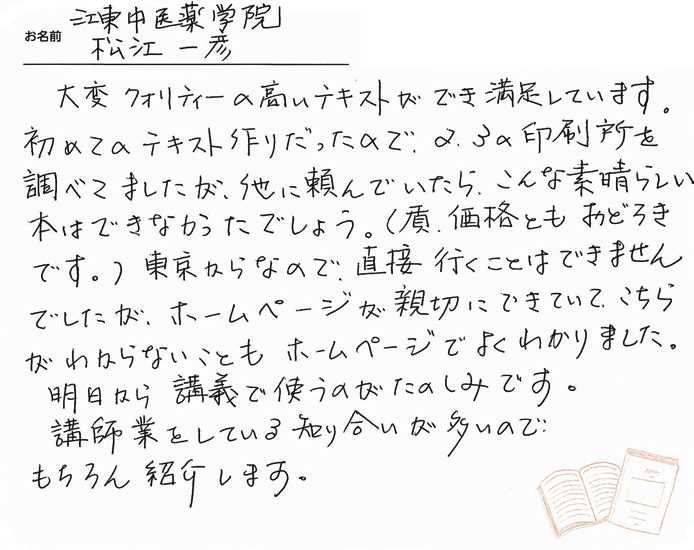 江東中医薬学院
お名前 松江 一彦
大変 クオリティーの高いテキストができ満足しています。
初めてのテキスト作りだったので、2、3の印刷所を
調べてましたが、他に頼んでいたら、こんな素晴らしい
本はできなかったでしょう。(質、価格とも おどろき
です。) 東京からなので、直接 行くことはできません
でしたが、ホームページが親切にできていて、こちら
がわからないことも ホームページでよくわかりました。
明日から 講義で使うのがたのしみです。
講師業をしている知り合いが多いので
もちろん紹介します。